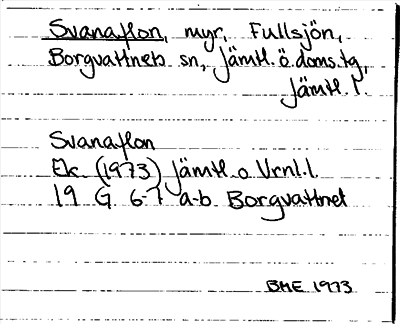 Svanaflon, myr, Fullsjön,
Borgvattnets sn, Jämtl. ö. doms. tg,
Jämtl. l.
Svanaflon
Ek. (1973) Jämtl. o. Vrnl. l.
19 G 6-7 a-b Borgvattnet
BME 1973